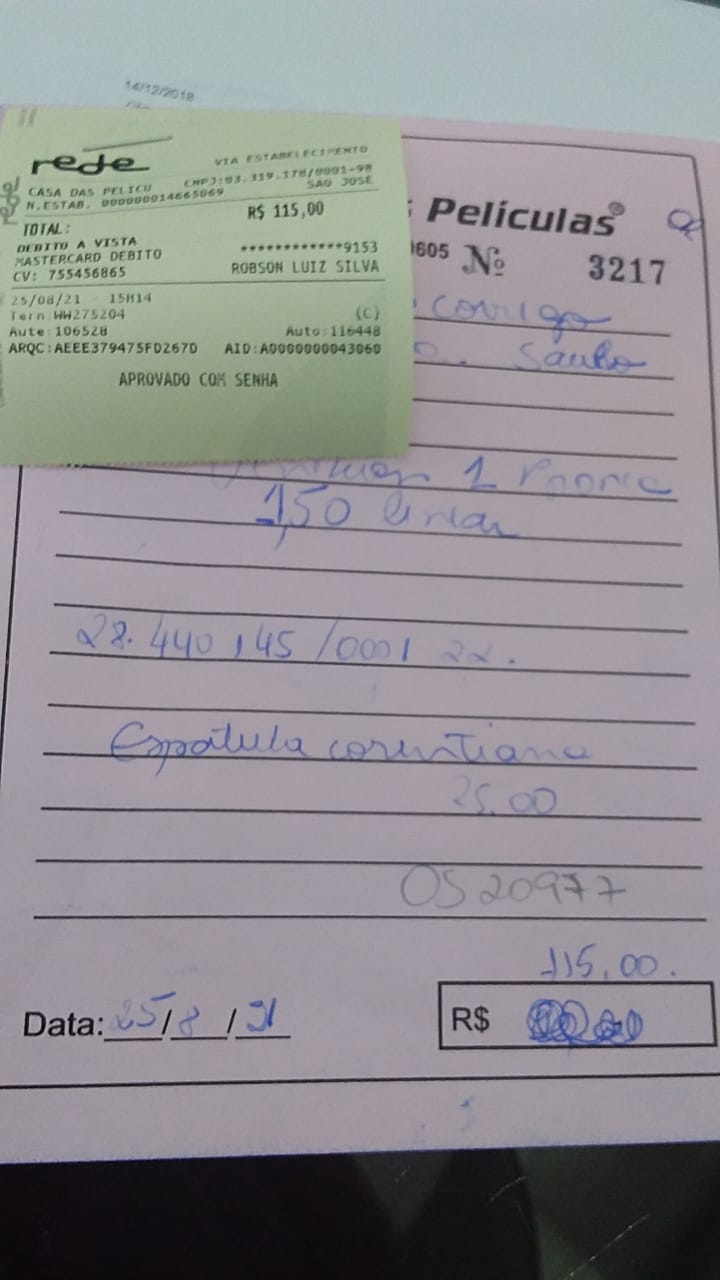 14/12/2018
rede
VIA ESTABELECIMENTO
CASA DAS PELICU CNPJ:03.319.178/0001-98
N.ESTAB. 000000014665069 SAO JOSE
TOTAL: R$ 115,00
DEBITO A VISTA
MASTERCARD DEBITO ************9153
CV: 755456865 ROBSON LUIZ SILVA
25/08/21 - 15H14
Term:WW275204 (C)
Aute:106528 Auto:116448
ARQC:AEEE379475FD267D AID:A0000000043060
APROVADO COM SENHA
Películas®
0605 Nº 3217
1
1,50 linear
28.440,145/0001 22.
Espátula corintiana
25.00
OS 20977
115,00.
Data: 25/8/21
R$